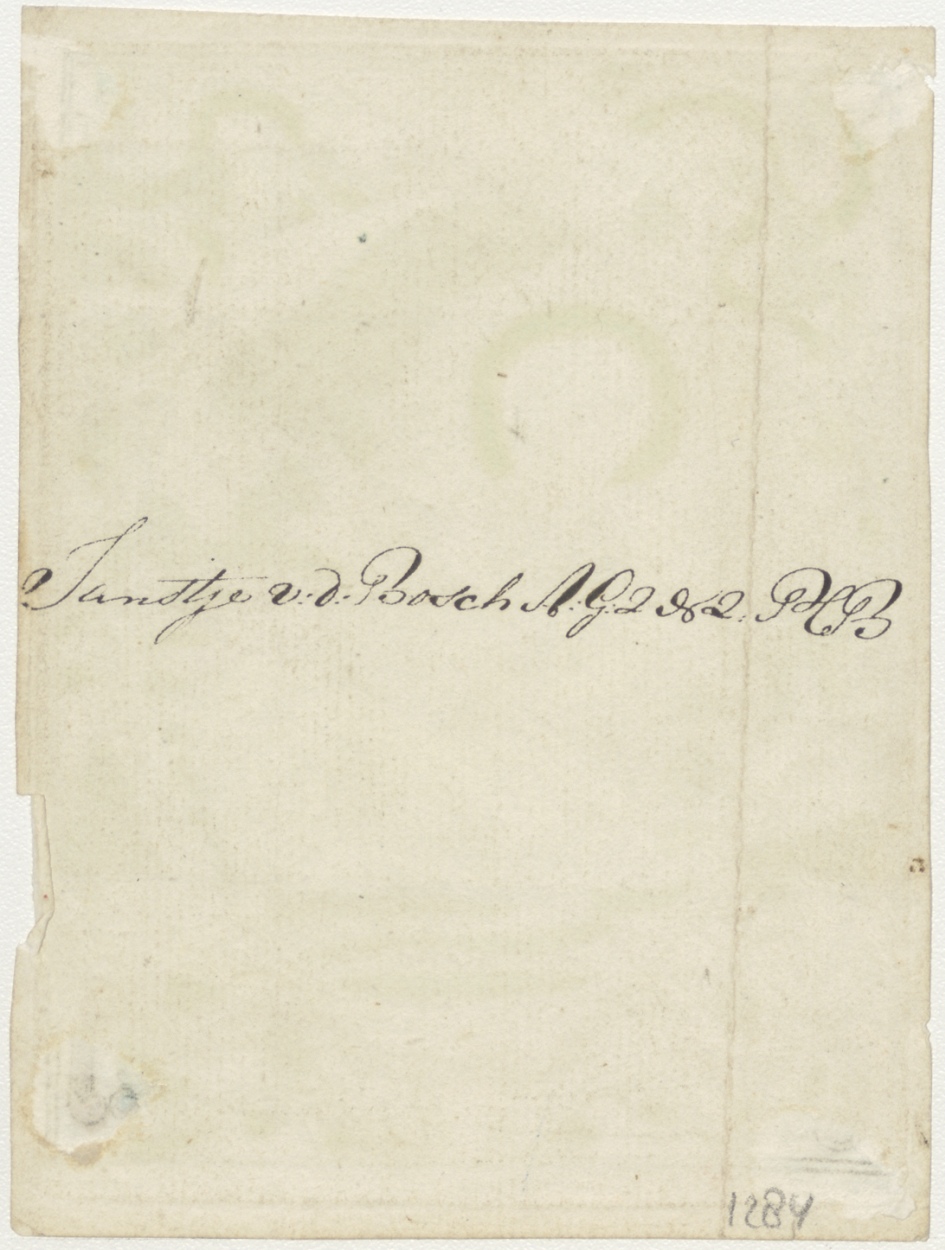 Janstje v:d: Bosch A:G:2 & 2: PHB
1284